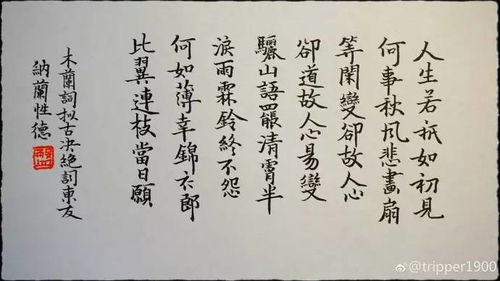 人生若祇如初見
何事秋风悲畫扇
等閑變卻故人心
卻道故人心易變
驪山語罷清霄半
淚雨霖鈴終不怨
何如薄幸錦衣郎
比翼連枝當日願
木蘭詞拟古決絕詞柬友
納蘭性德
@tripper1900